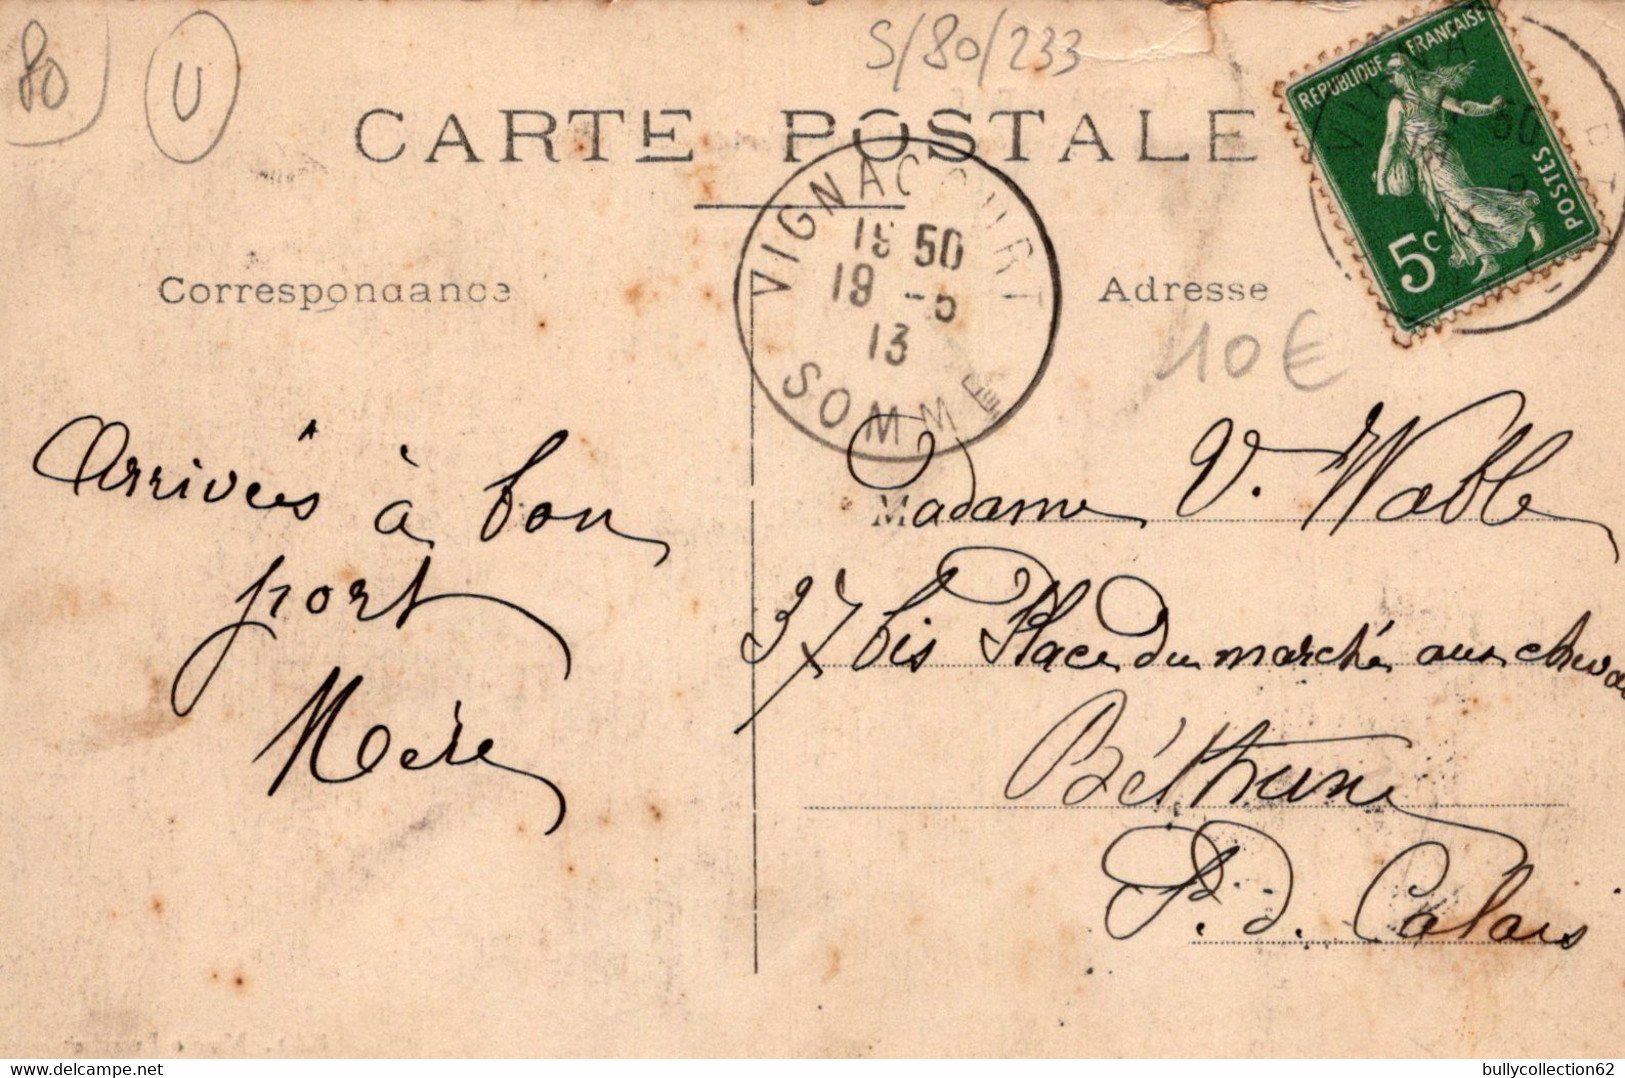 80
U
S/80/233
CARTE POSTALE
RÉPUBLIQUE FRANÇAISE
POSTES
5c
VIGNACOURT
18 50
19 -5
13
SOMME
Correspondance
Adresse
10€
Arrivées à bon
port
Mère
Madame V. Wable
37 bis Place du marché aux chevaux
Béthune
P. d. Calais
bullycollection62